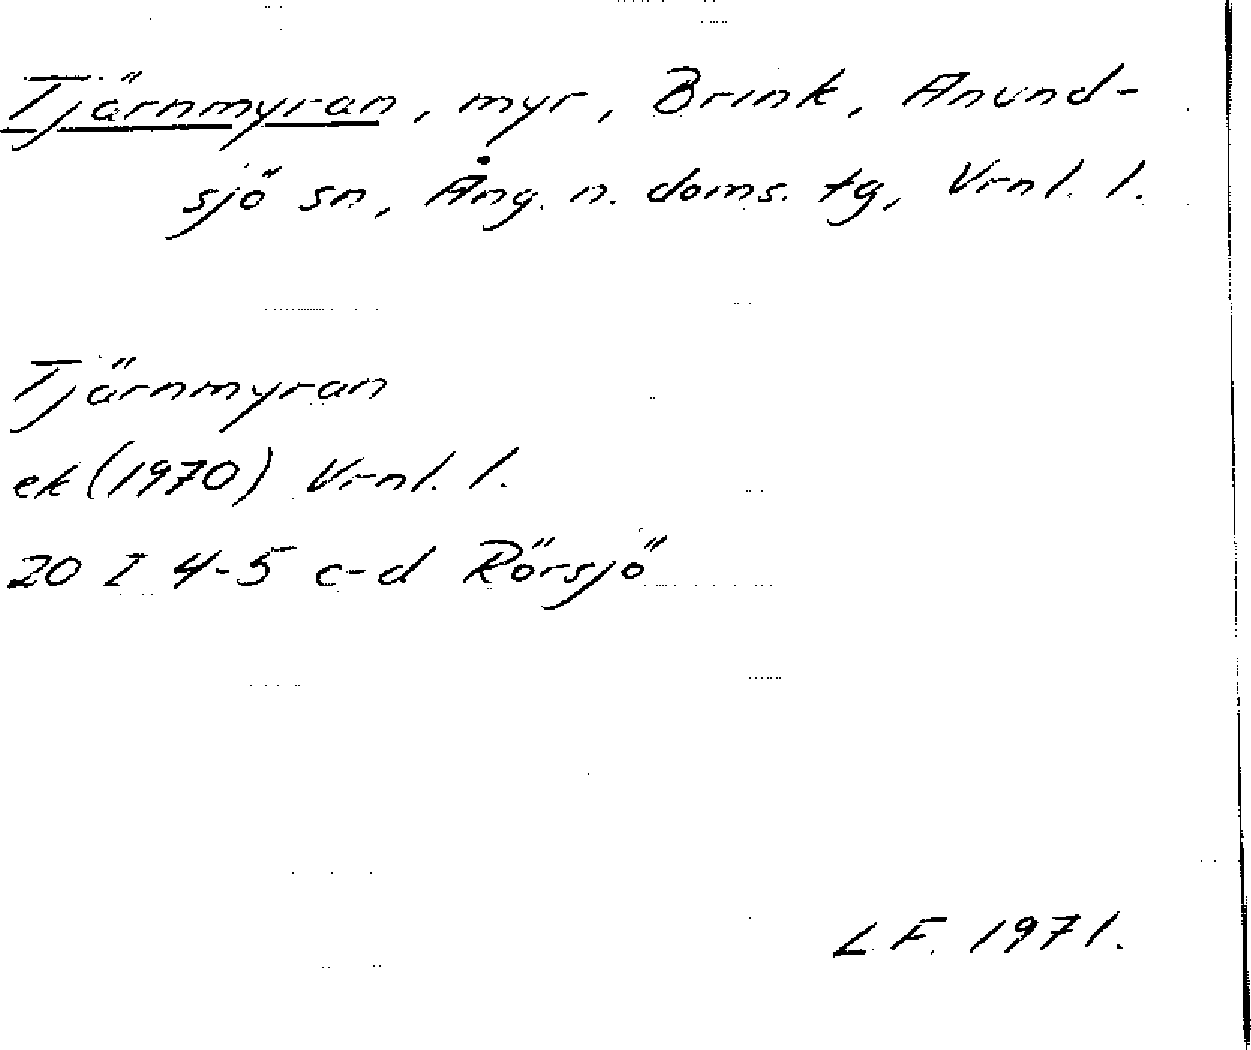 Tjärnmyran, myr, Brink, Anund-
sjö sn, Ång. n. doms. tg, Vrnl. l.
Tjärnmyran
ek (1970) Vrnl. l.
20 I 4-5 c-d Rörsjö
L F. 1971.